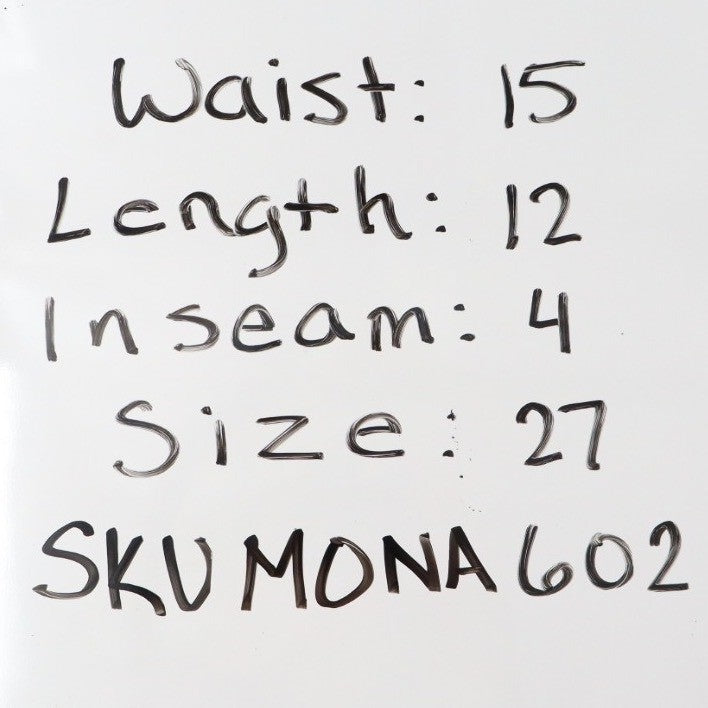 Waist: 15
Length: 12
Inseam: 4
Size: 27
SKU MONA 602